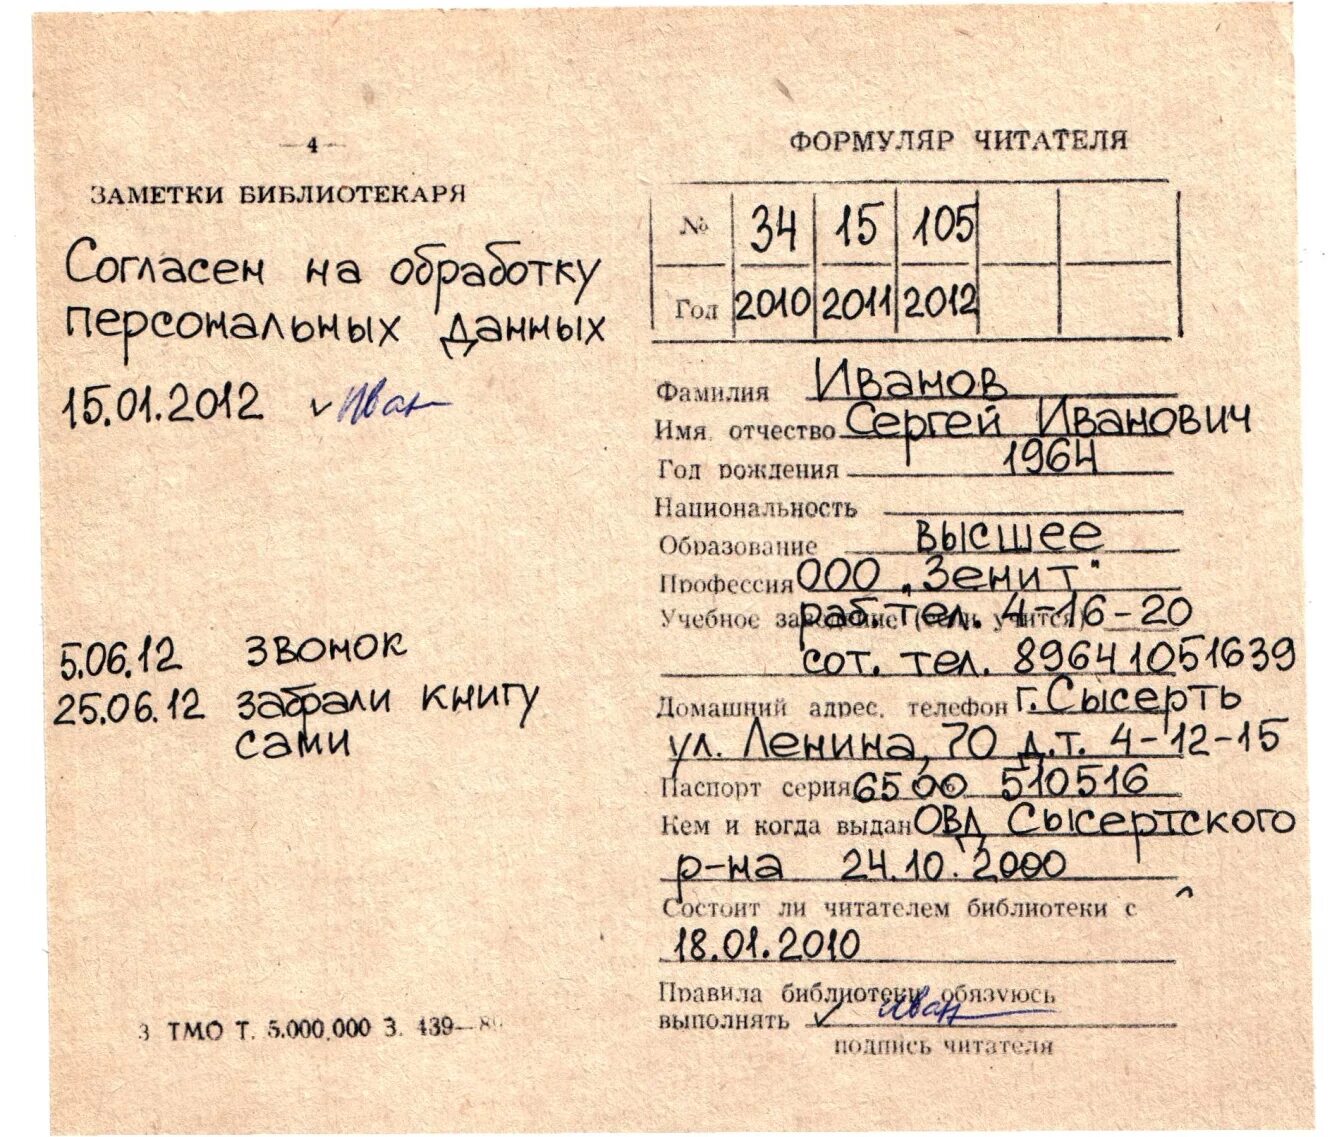 — 4 —
ЗАМЕТКИ БИБЛИОТЕКАРЯ
Согласен на обработку
персональных данных
15.01.2012 Иван
5.06.12 звонок
25.06.12 забрали книгу
сами
3 ТМО Т. 5.000.000 З. 439—
ФОРМУЛЯР ЧИТАТЕЛЯ
№ 34 15 105
Год 2010 2011 2012
Фамилия Иванов
Имя, отчество Сергей Иванович
Год рождения 1964
Национальность
Образование высшее
Профессия ООО „Зенит"
Учебное заведение (если учится) раб.тел. 4-16-20
сот. тел. 89641051639
Домашний адрес, телефон г.Сысерть
ул. Ленина, 70 д.т. 4-12-15
Паспорт серия 6500 510516
Кем и когда выдан ОВД Сысертского
р-на 24.10.2000
Состоит ли читателем библиотеки с
18.01.2010
Правила библиотеки обязуюсь
выполнять Иван
подпись читателя